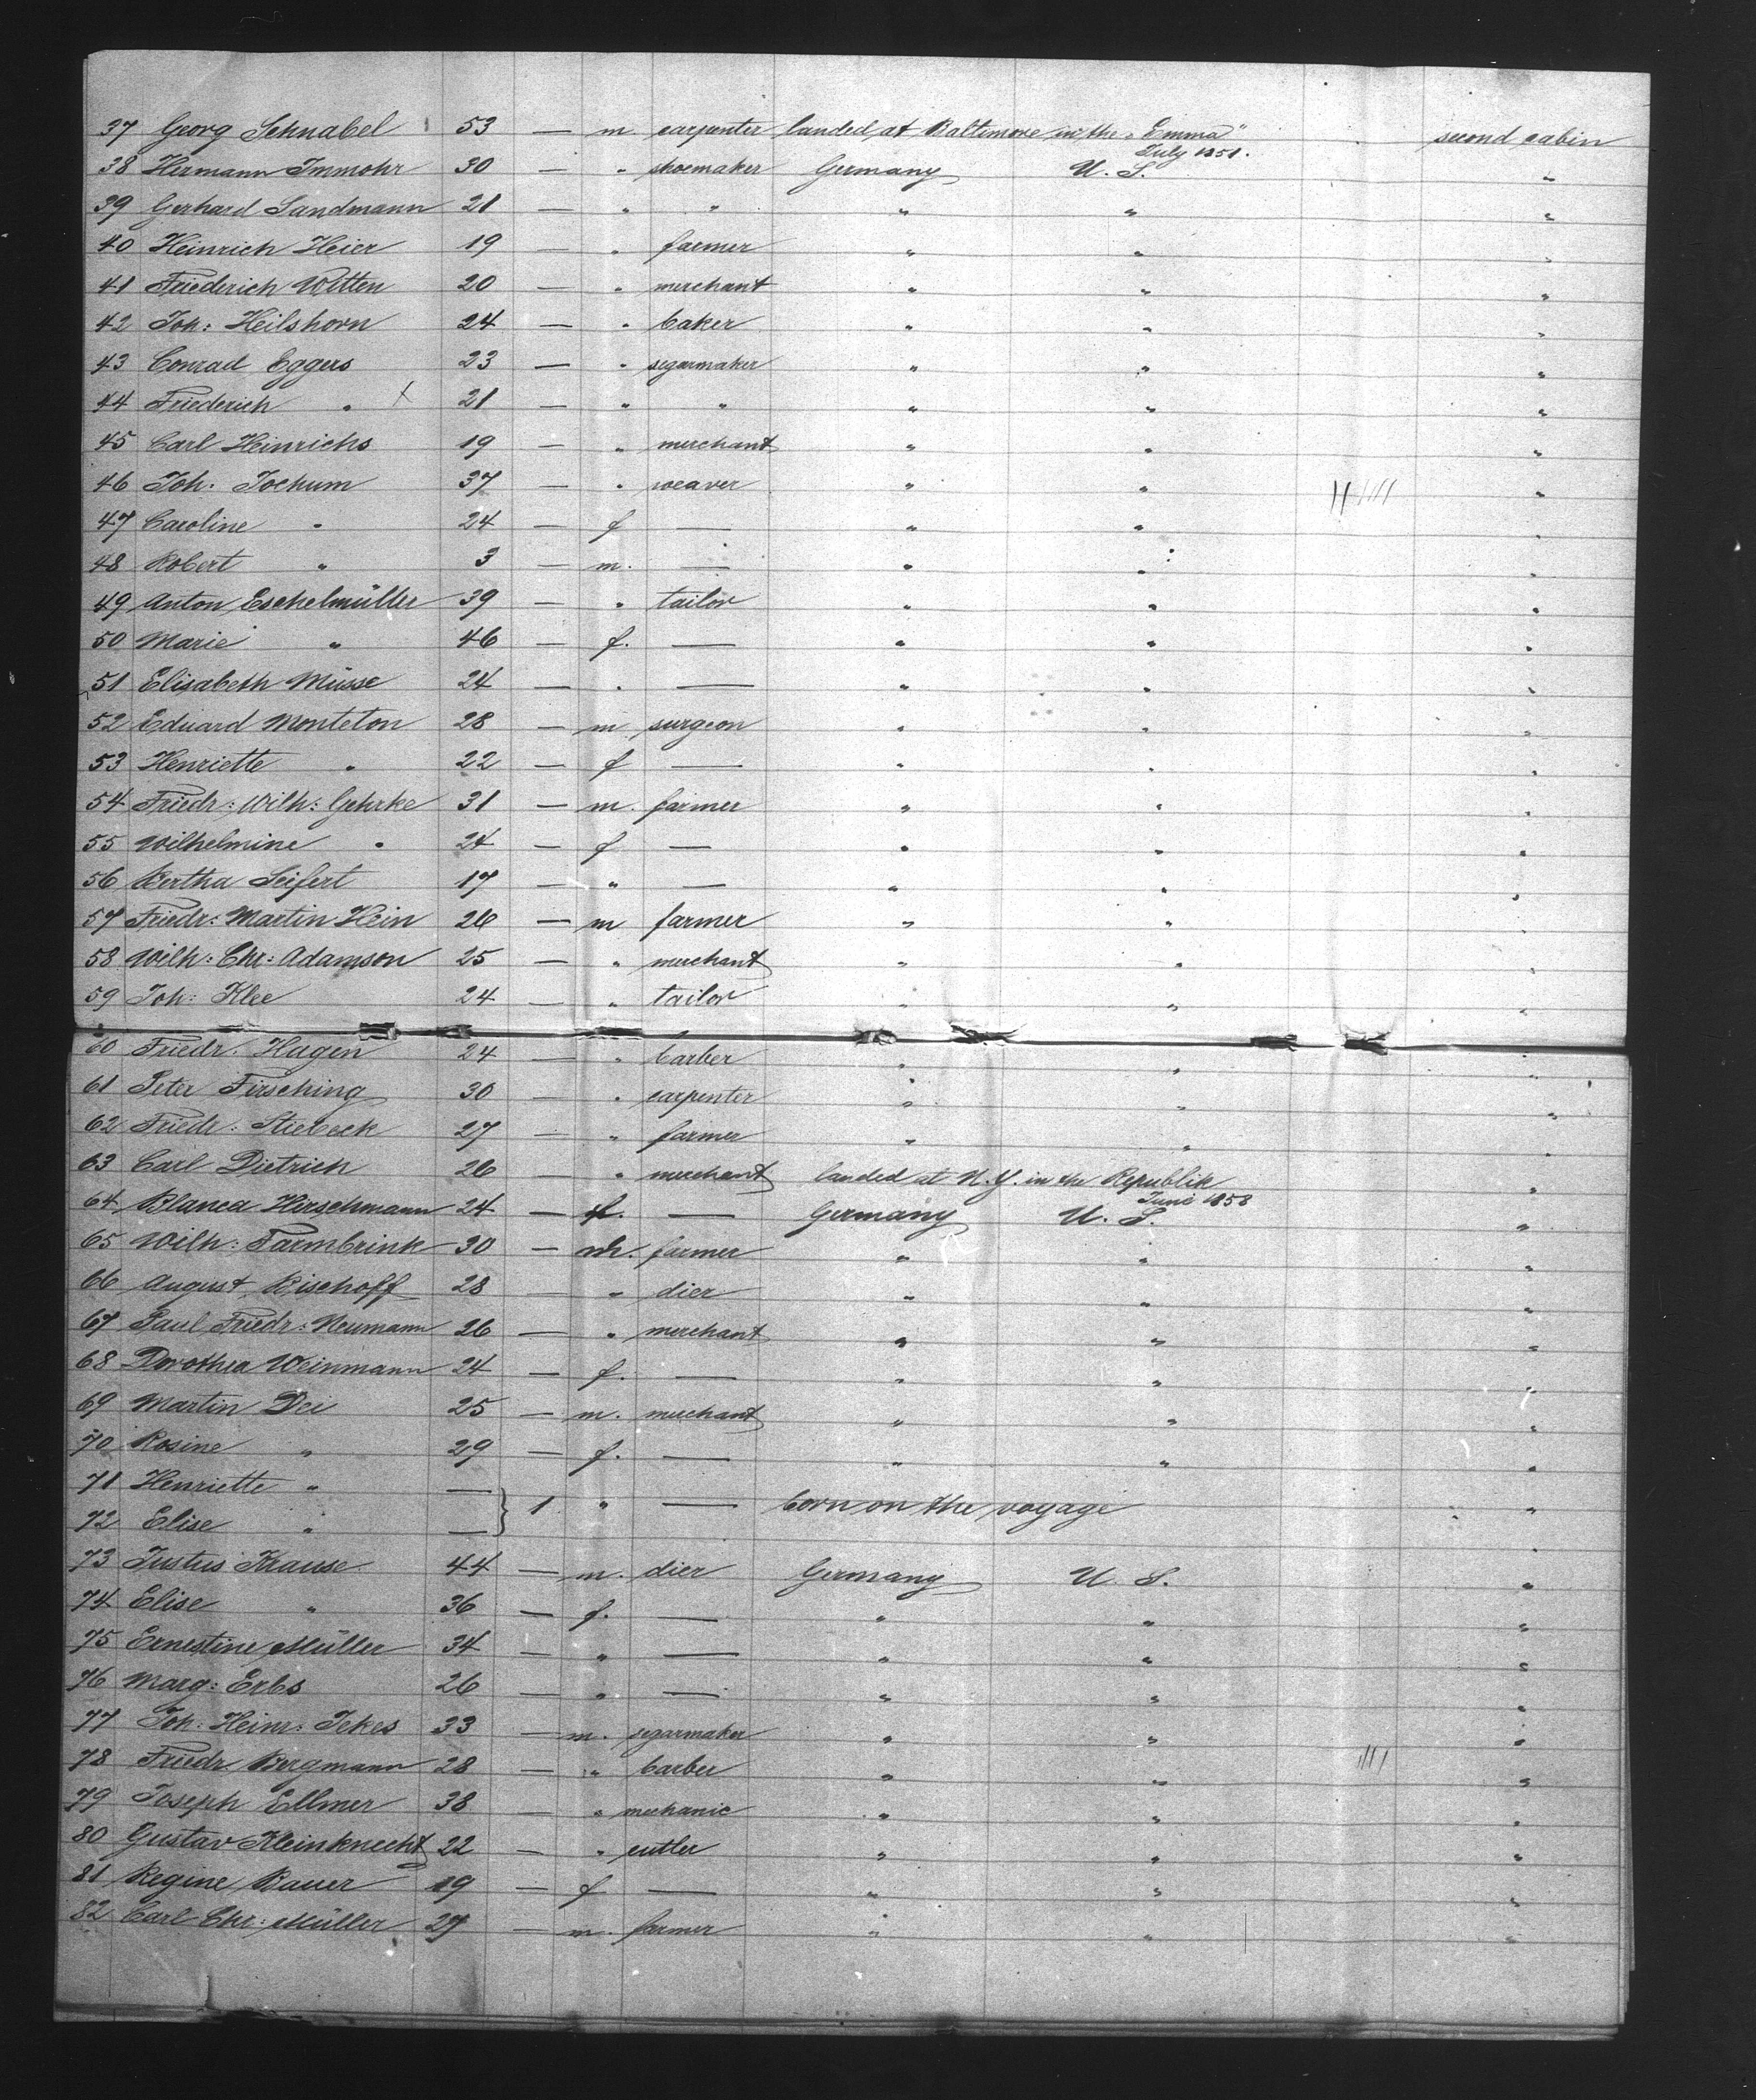 37 Georg Schnabel 53 — m. carpenter landed at Baltimore in the "Emma" second cabin
July 1851.
38 Hermann Immohr 30 — " shoemaker Germany U. S. "
39 Gerhard Landmann 21 — " " " " "
40 Heinrich Heier 19 — " farmer " " "
41 Friederich Witten 20 — " merchant " " "
42 Joh: Heilshorn 24 — " baker " " "
43 Conrad Eggers 23 — " segarmaker " " "
44 Friederich " X 21 — " " " " "
45 Carl Heinrichs 19 — " merchant " " "
46 Joh. Jochum 37 — " weaver " " "
47 Caroline " 24 — f — " " "
48 Robert " 3 — m. — " " "
49 Anton Eschelmüller 39 — " tailor " " "
50 Marie " 46 — f. — " " "
51 Elisabeth Müsse 24 — " — " " "
52 Eduard Monteton 28 — m surgeon " " "
53 Henriette " 22 — f — " " "
54 Friedr: Wilh: Gehrke 31 — m. farmer " " "
55 Wilhelmine " 24 — f — " " "
56 Bertha Seifert 17 — " — " " "
57 Friedr: Martin Hein 26 — m farmer " " "
58 Wilh: Chr: Adamson 25 — " merchant " " "
59 Joh: Klee 24 — " tailor " " "
60 Friedr. Hagen 24 — " barber " " "
61 Peter Firsching 30 — " carpenter " " "
62 Friedr: Stiebeck 27 — " farmer " " "
63 Carl Dietrich 26 — " merchant landed at N.Y. in the Republik "
June 1858
64 Blanca Hirschmann 24 — f. — Germany U. S. "
65 Wilh: Farmbrink 30 — m. farmer " " "
66 August Bischoff 28 — " dier " " "
67 Paul Friedr: Neumann 26 — " merchant " " "
68 Dorothea Weinmann 24 — f. — " " "
69 Martin Dei 25 — m. merchant " " "
70 Rosine " 29 — f. — " " "
71 Henriette " — } 1 " — born on the voyage "
72 Elise " — "
73 Justus Krause 44 — m. dier Germany U. S. "
74 Elise " 36 — f. — " " "
75 Ernestine Müller 34 — " — " " "
76 Marg: Erbs 26 — " — " " "
77 Joh: Heinr: Jekes 33 — m. segarmaker " " "
78 Friedr. Bergmann 28 — " barber " " "
79 Joseph Ellmer 38 — " mechanic " " "
80 Gustav Kleinknecht 22 — " cutler " " "
81 Regine Bauer 19 — f — " " "
82 Carl Chr: Müller 27 — m. farmer " " "